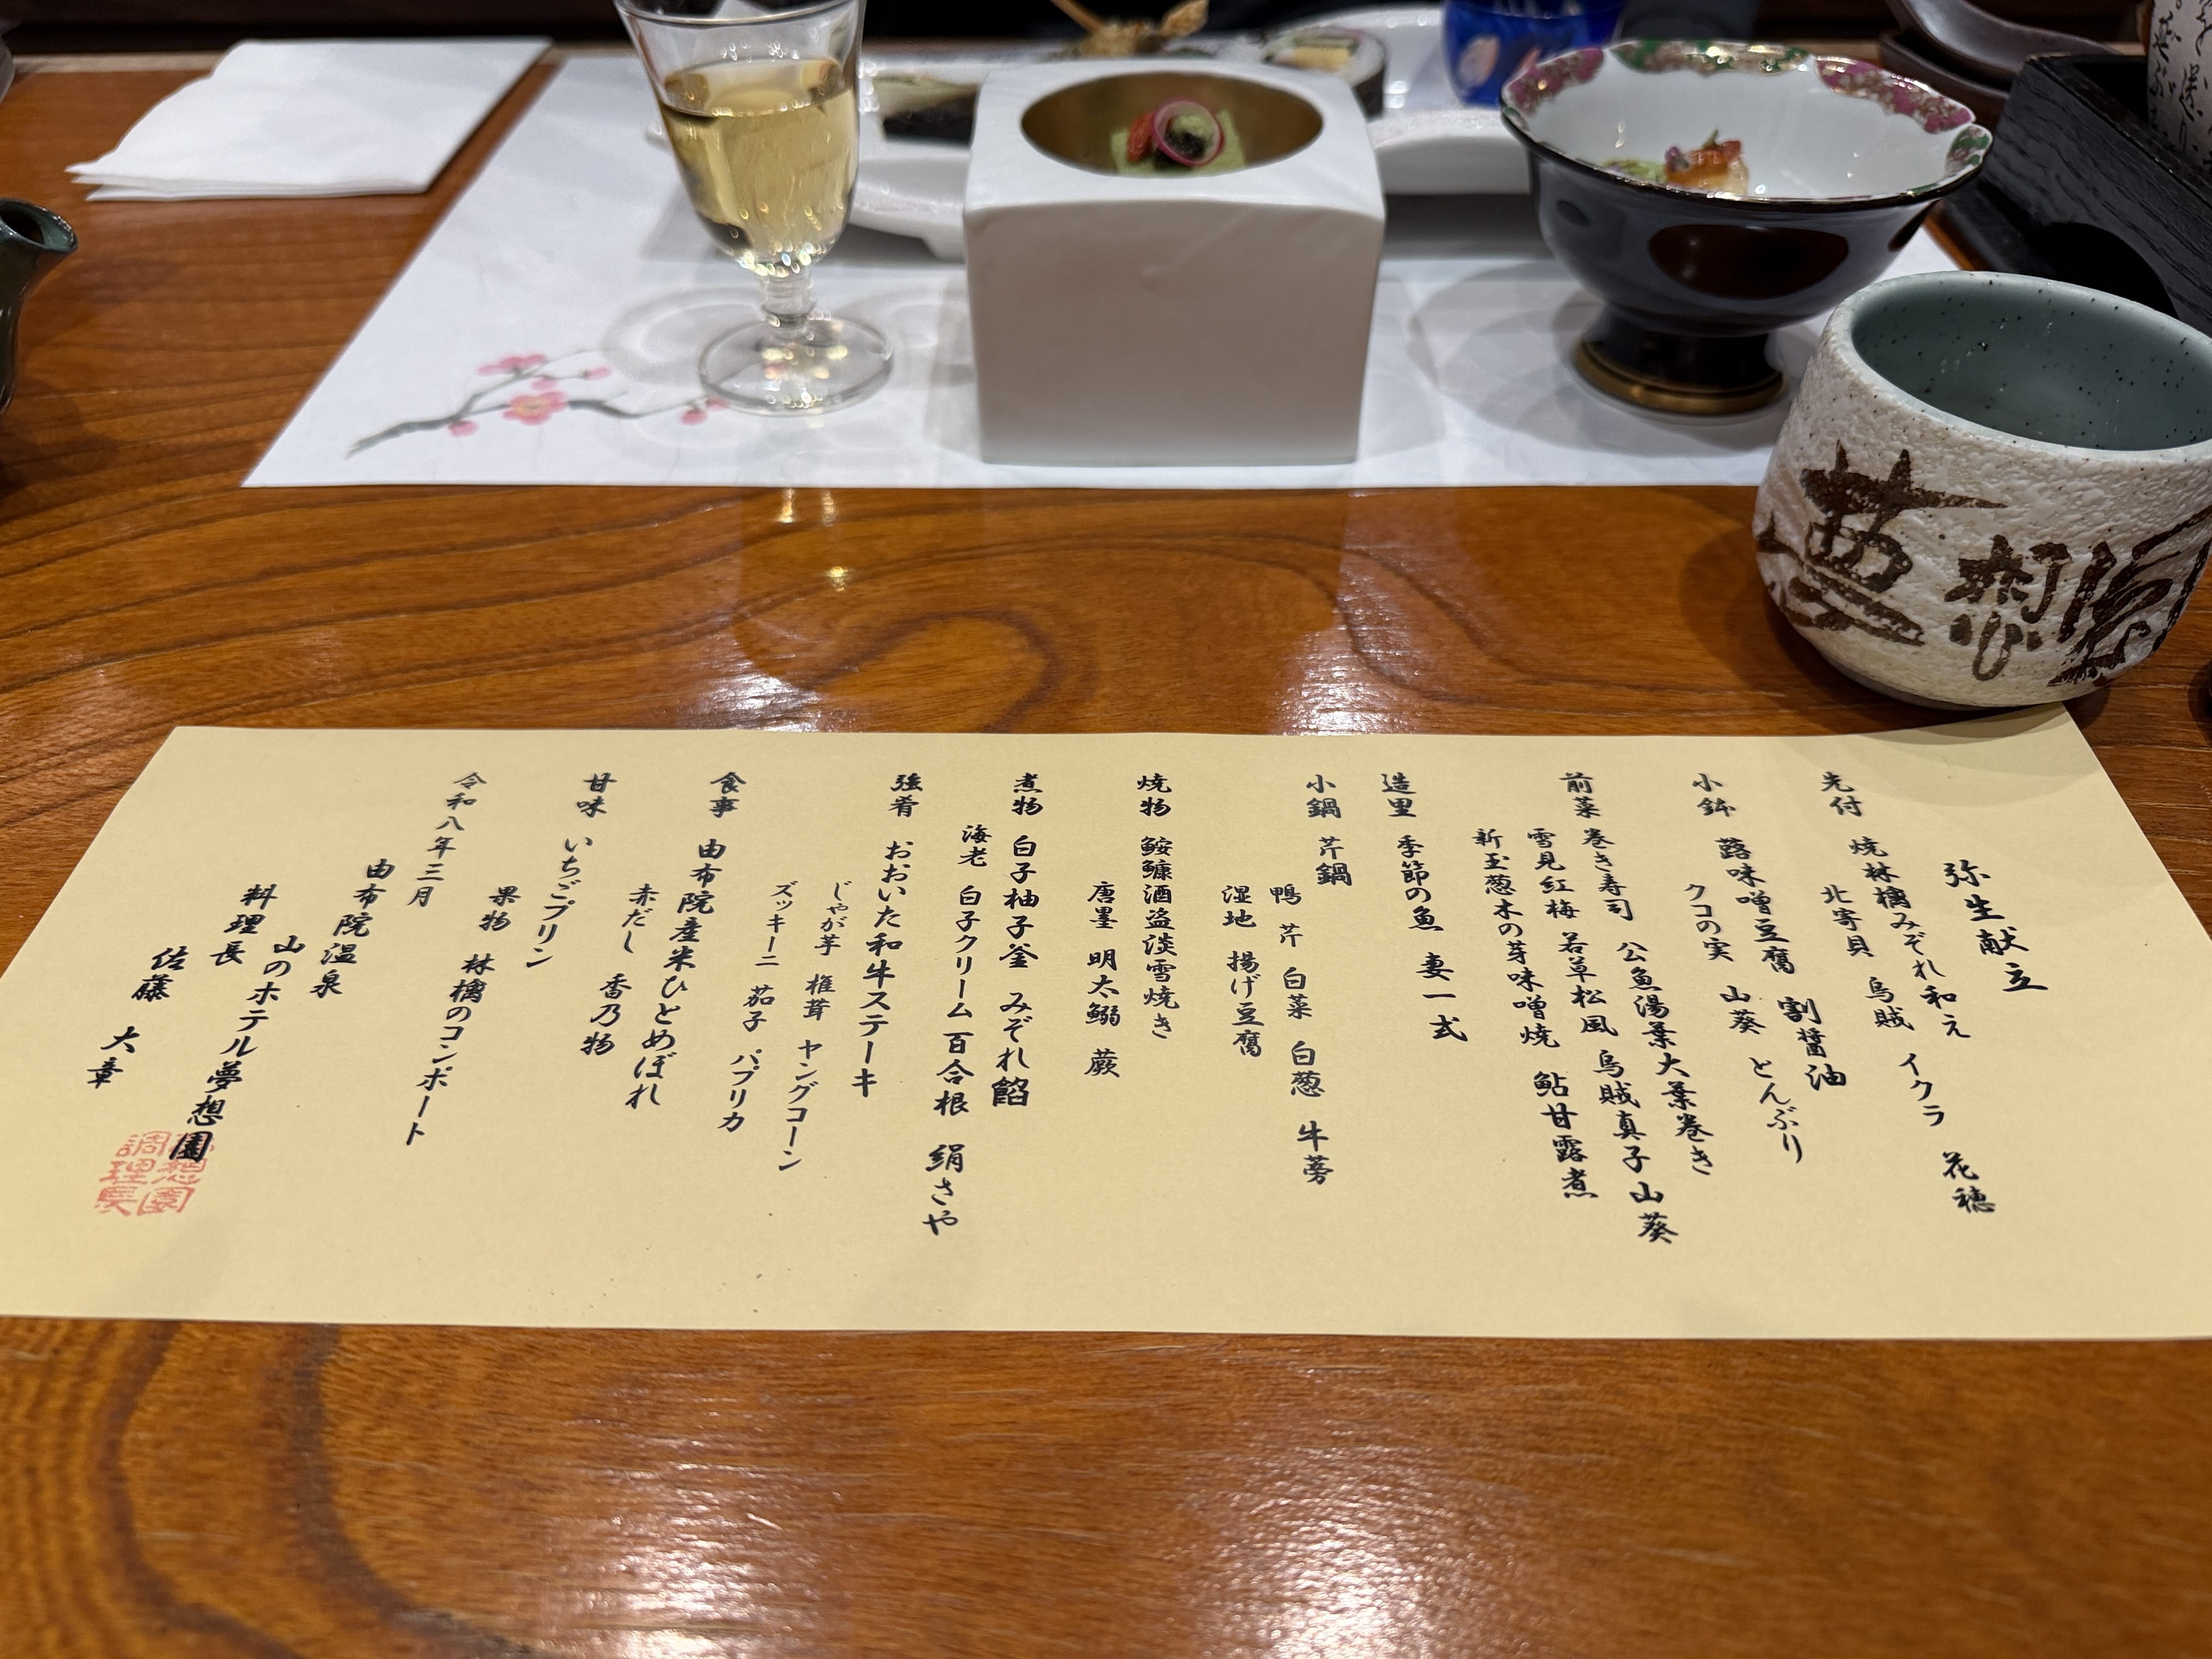 弥生献立
先付 焼林檎みぞれ和え
北寄貝 烏賊 イクラ 花穂
小鉢 蕗味噌豆腐 割醤油
クコの実 山葵 とんぶり
前菜 巻き寿司 公魚湯葉大葉巻き
雪見紅梅 若草松風 烏賊真子 山葵
新玉葱木の芽味噌焼 鮎甘露煮
造里 季節の魚 妻一式
小鍋 芹鍋
鴨 芹 白菜 白葱 牛蒡
湿地 揚げ豆腐
焼物 鮟鱇酒盗淡雪焼き
唐墨 明太鰯 蕨
煮物 白子柚子釜 みぞれ餡
海老 白子クリーム 百合根 絹さや
強肴 おおいた和牛ステーキ
じゃが芋 椎茸 ヤングコーン
ズッキーニ 茄子 パプリカ
食事 由布院産米ひとめぼれ
赤だし 香乃物
甘味 いちごプリン
果物 林檎のコンポート
令和八年三月
由布院温泉
山のホテル夢想園
料理長
佐藤 大章
夢想園